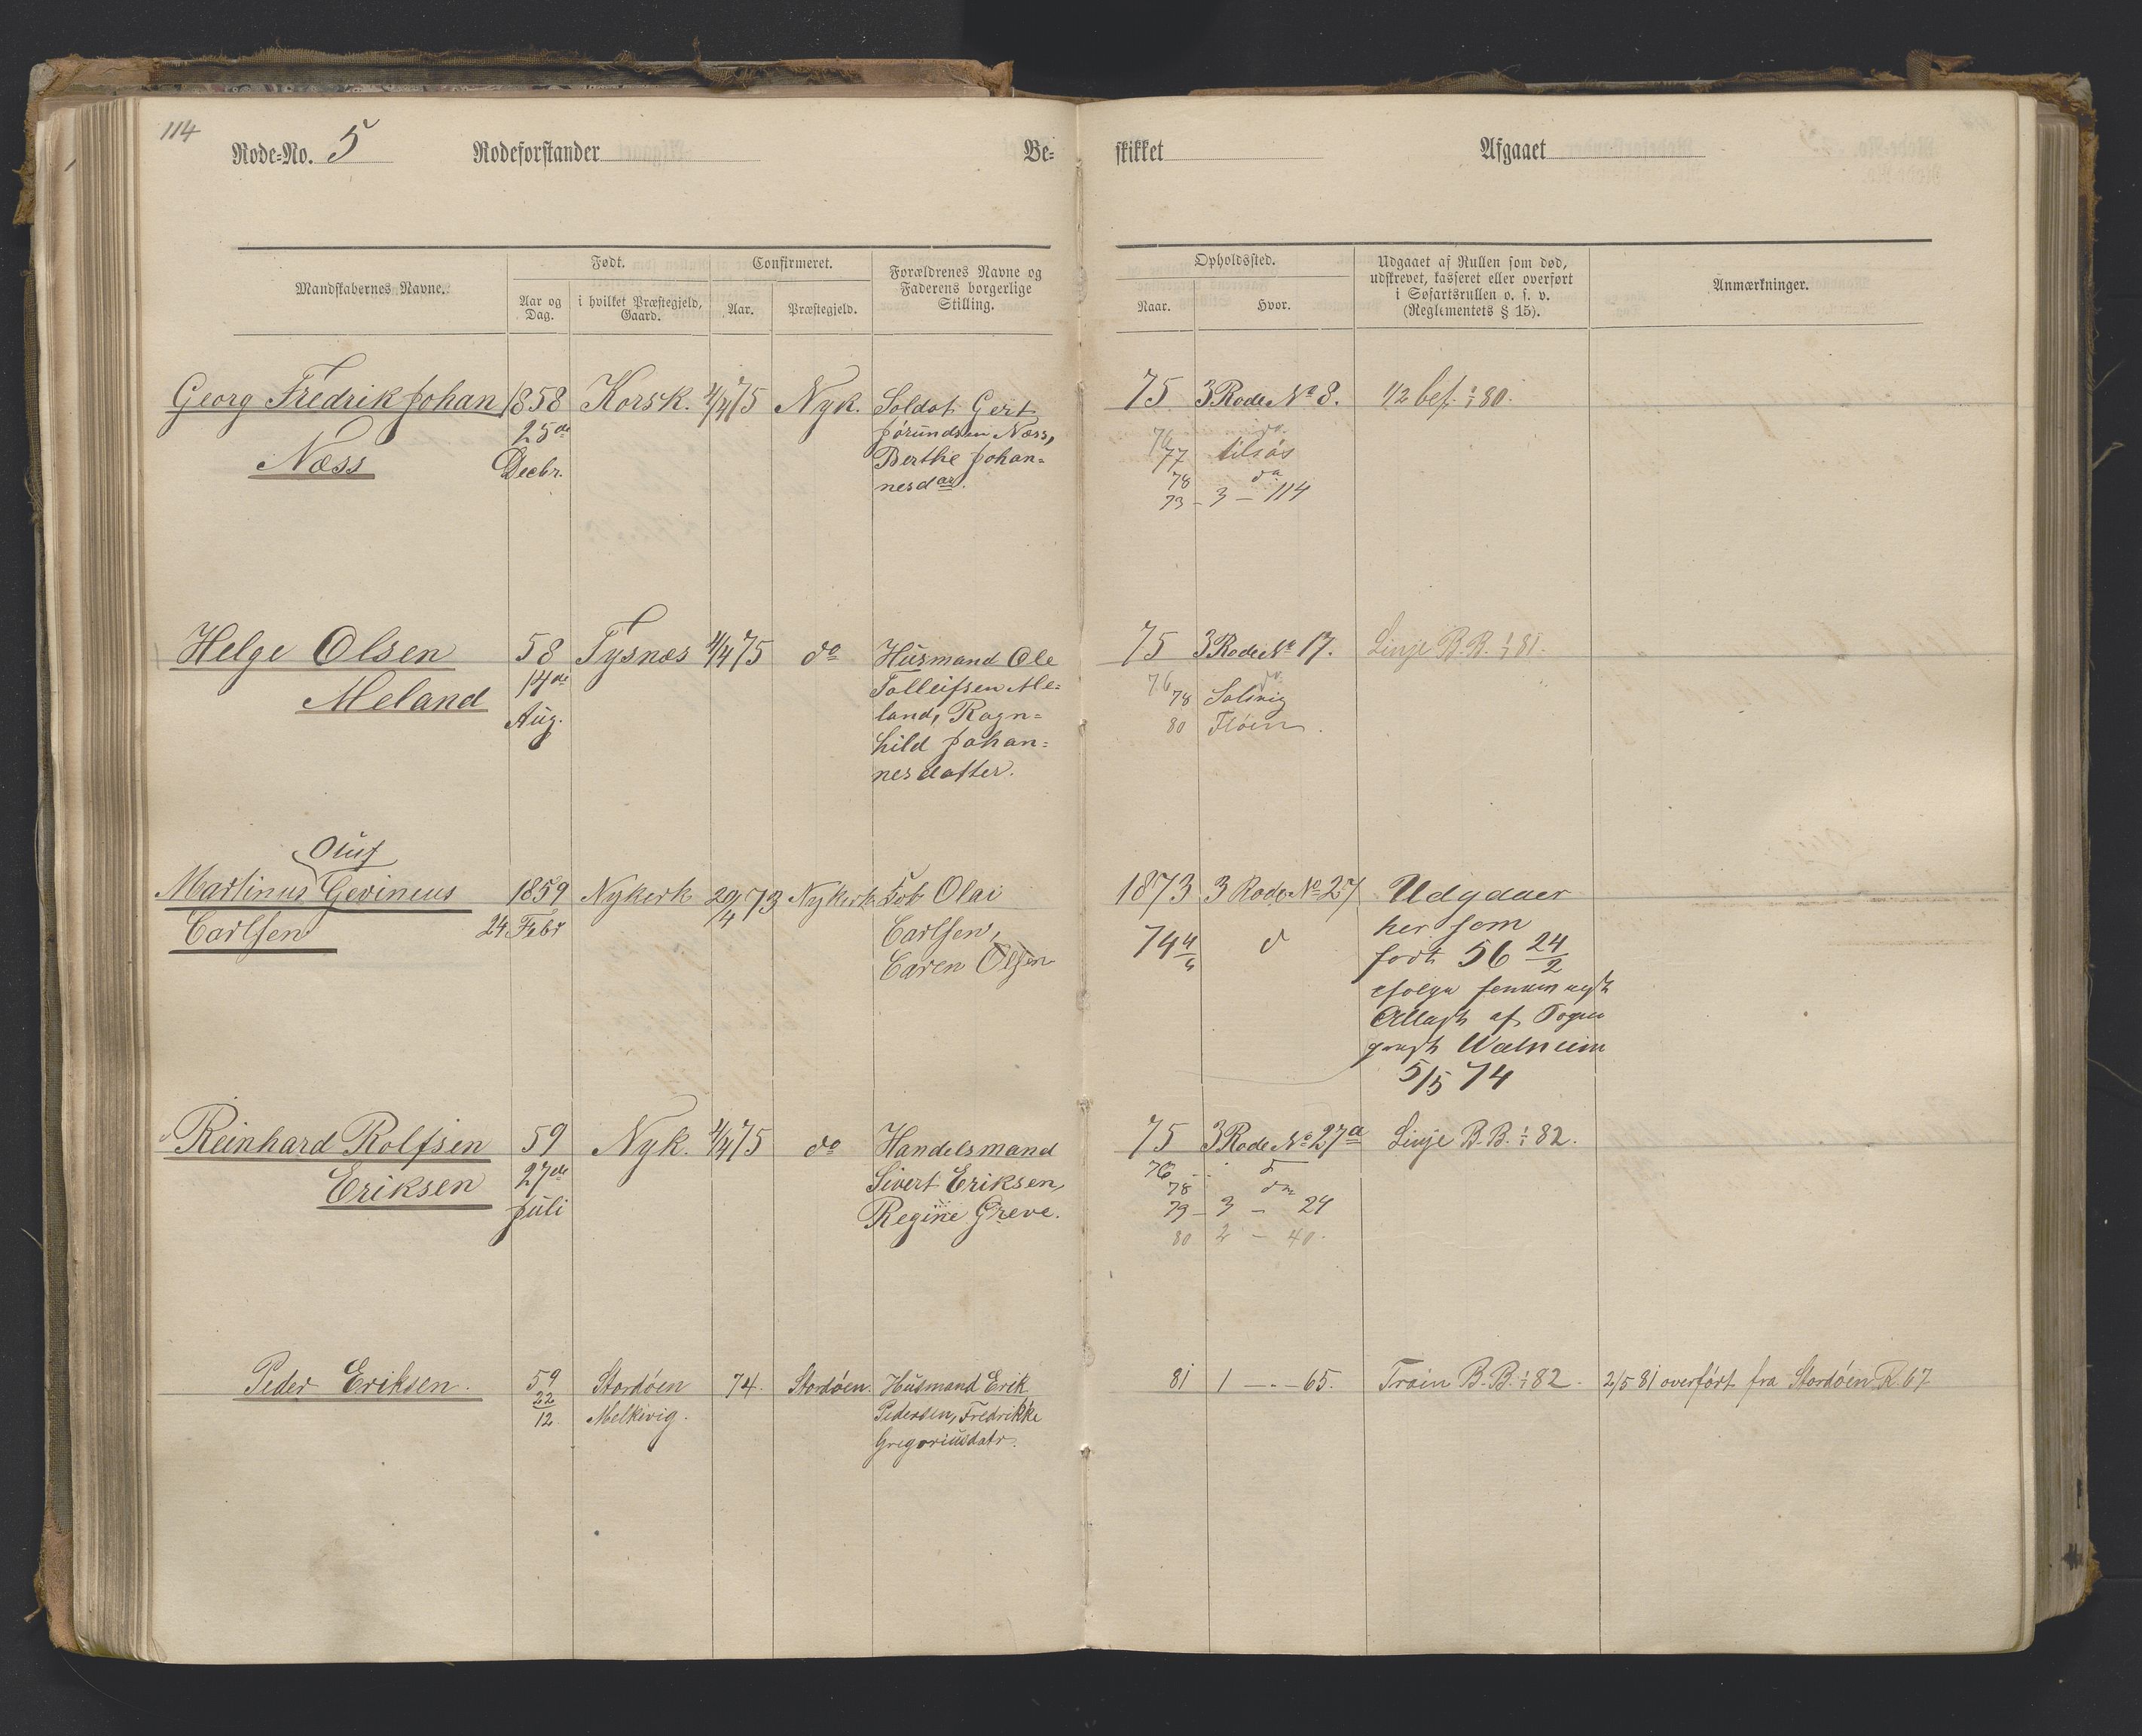 114
Rode-No. 5 Rodeforstander Be-
skikket Afgaaet
Mandskabernes Navne.
Født.
Aar og Dag.
i hvilket Præstegjeld, Gaard.
Confirmeret.
Aar.
Præstegjeld.
Forældrenes Navne og
Faderens borgerlige
Stilling.
Opholdssted.
Naar.
Hvor.
Udgaaet af Rullen som død,
udskrevet, kasseret eller overført
i Søfartsrullen o. s. v.
(Reglementets § 15).
Anmærkninger.
Georg Fredrik Johan 1858 Korsk. 4/4 75 Nyk. Soldat Gert 75 3 Rode No 8. 1/2 bef. 1/1 80.
25de Jørundsen Næss, 76 do
Næss Decbr. Berthe Johan= 77 tilsøs
nesdatr. 78 do
79 - 3 - 114
Helge Olsen 58 Tysnæs 4/4 75 do Husmand Ole 75 3 Rode No 17. Linje B.B. 1/1 81.
14de Tolleifsen Me= 76 do
Meland Aug. land, Ragn= 78 Solvig
hild Johan= 80 Fløien
nesdatter.
Oluf
Martinus Gevineus 1859 Nykerk 20/4 73 Nykerk Olai 1873 3 Rode No 27 Udgaaer
Carlsen 24 Febr Carlsen, 74 4/4 d her som
Caren Olsen født 56 24/2
Attest af
5/5 74
Reinhard Rolfsen 59 Nyk. 4/4 75 do Handelsmand 75 3 Rode No 27a Linje B.B. 1/1 82.
Eriksen 27de Sivert Eriksen, 76
Juli Regine Greve. 78 do
79 - 3 - 24
80 2 - 40.
Peder Eriksen. 59 Stordøen 74. Stordøen. Husmand Erik 81 1 - 65. Train B.B. 1/1 82. 2/5 81 overført fra Stordøen R. 67
22/12 Melkevig. Pedersen, Fredrikke
Gregoriusdatr.